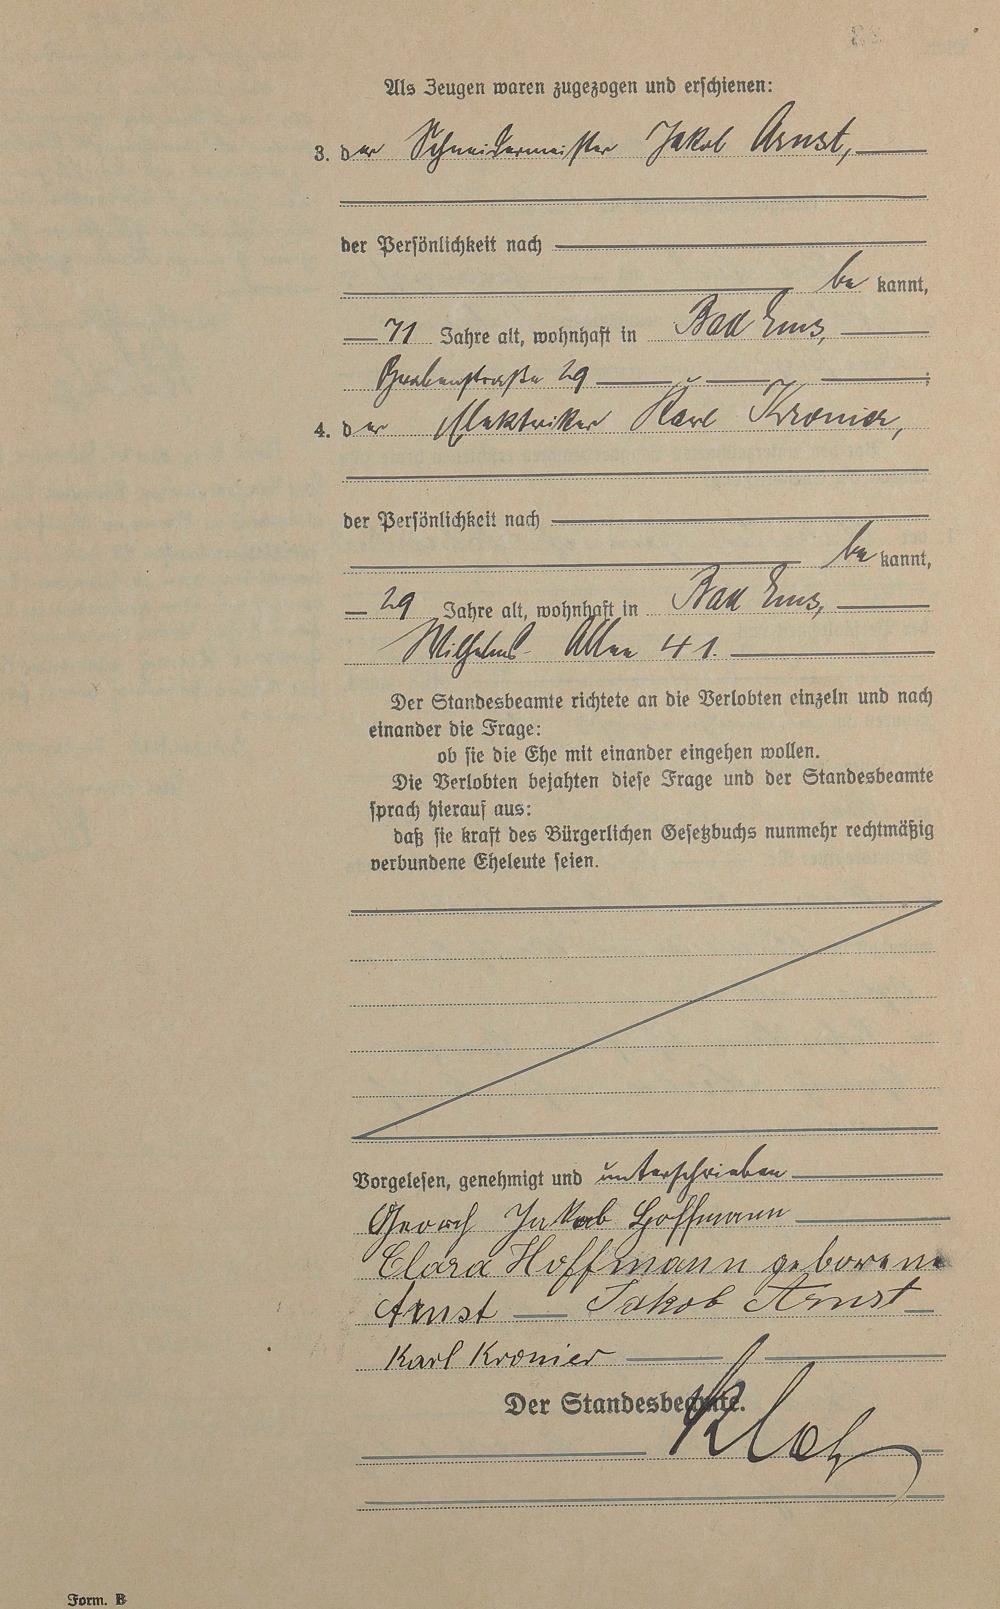 Als Zeugen waren zugezogen und erschienen:
3. der Schneidermeister Jakob Arnst,
der Persönlichkeit nach
be kannt,
71 Jahre alt, wohnhaft in Bad Ems,
Grabenstraße 29 ;
4. der Elektriker Karl Kronier,
der Persönlichkeit nach
be kannt,
29 Jahre alt, wohnhaft in Bad Ems,
Wilhelms- Allee 41.
Der Standesbeamte richtete an die Verlobten einzeln und nach
einander die Frage:
ob sie die Ehe mit einander eingehen wollen.
Die Verlobten bejahten diese Frage und der Standesbeamte
sprach hierauf aus:
daß sie kraft des Bürgerlichen Gesetzbuchs nunmehr rechtmäßig
verbundene Eheleute seien.
Vorgelesen, genehmigt und unterschrieben
Georg Jakob Hoffmann
Clara Hoffmann geborene
Arnst Jakob Arnst
Karl Kronier
Der Standesbeamte.
Form. B